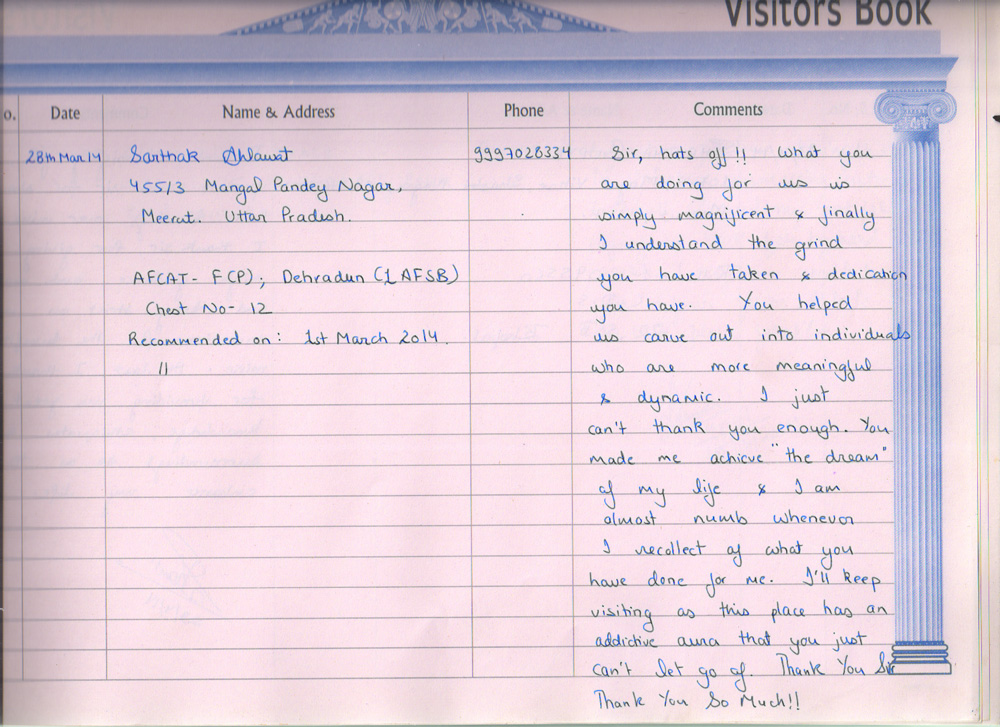 Visitors Book
o. Date Name & Address Phone Comments
28th Mar 14 Sarthak Ahlawat 9997028334 Sir, hats off !! What you
455/3 Mangal Pandey Nagar, are doing for us is
Meerut. Uttar Pradesh. simply magnificent & finally
I understand the grind
AFCAT- FCP); Dehradun (1 AFSB) you have taken & dedication
Chest No- 12 you have. You helped
Recommended on: 1st March 2014. us carve out into individuals
11 who are more meaningful
& dynamic. I just
can't thank you enough. You
made me achieve "the dream"
of my life & I am
almost numb whenever
I recollect of what you
have done for me. I'll keep
visiting as this place has an
addictive aura that you just
can't let go of. Thank You Sir
Thank You So Much!!